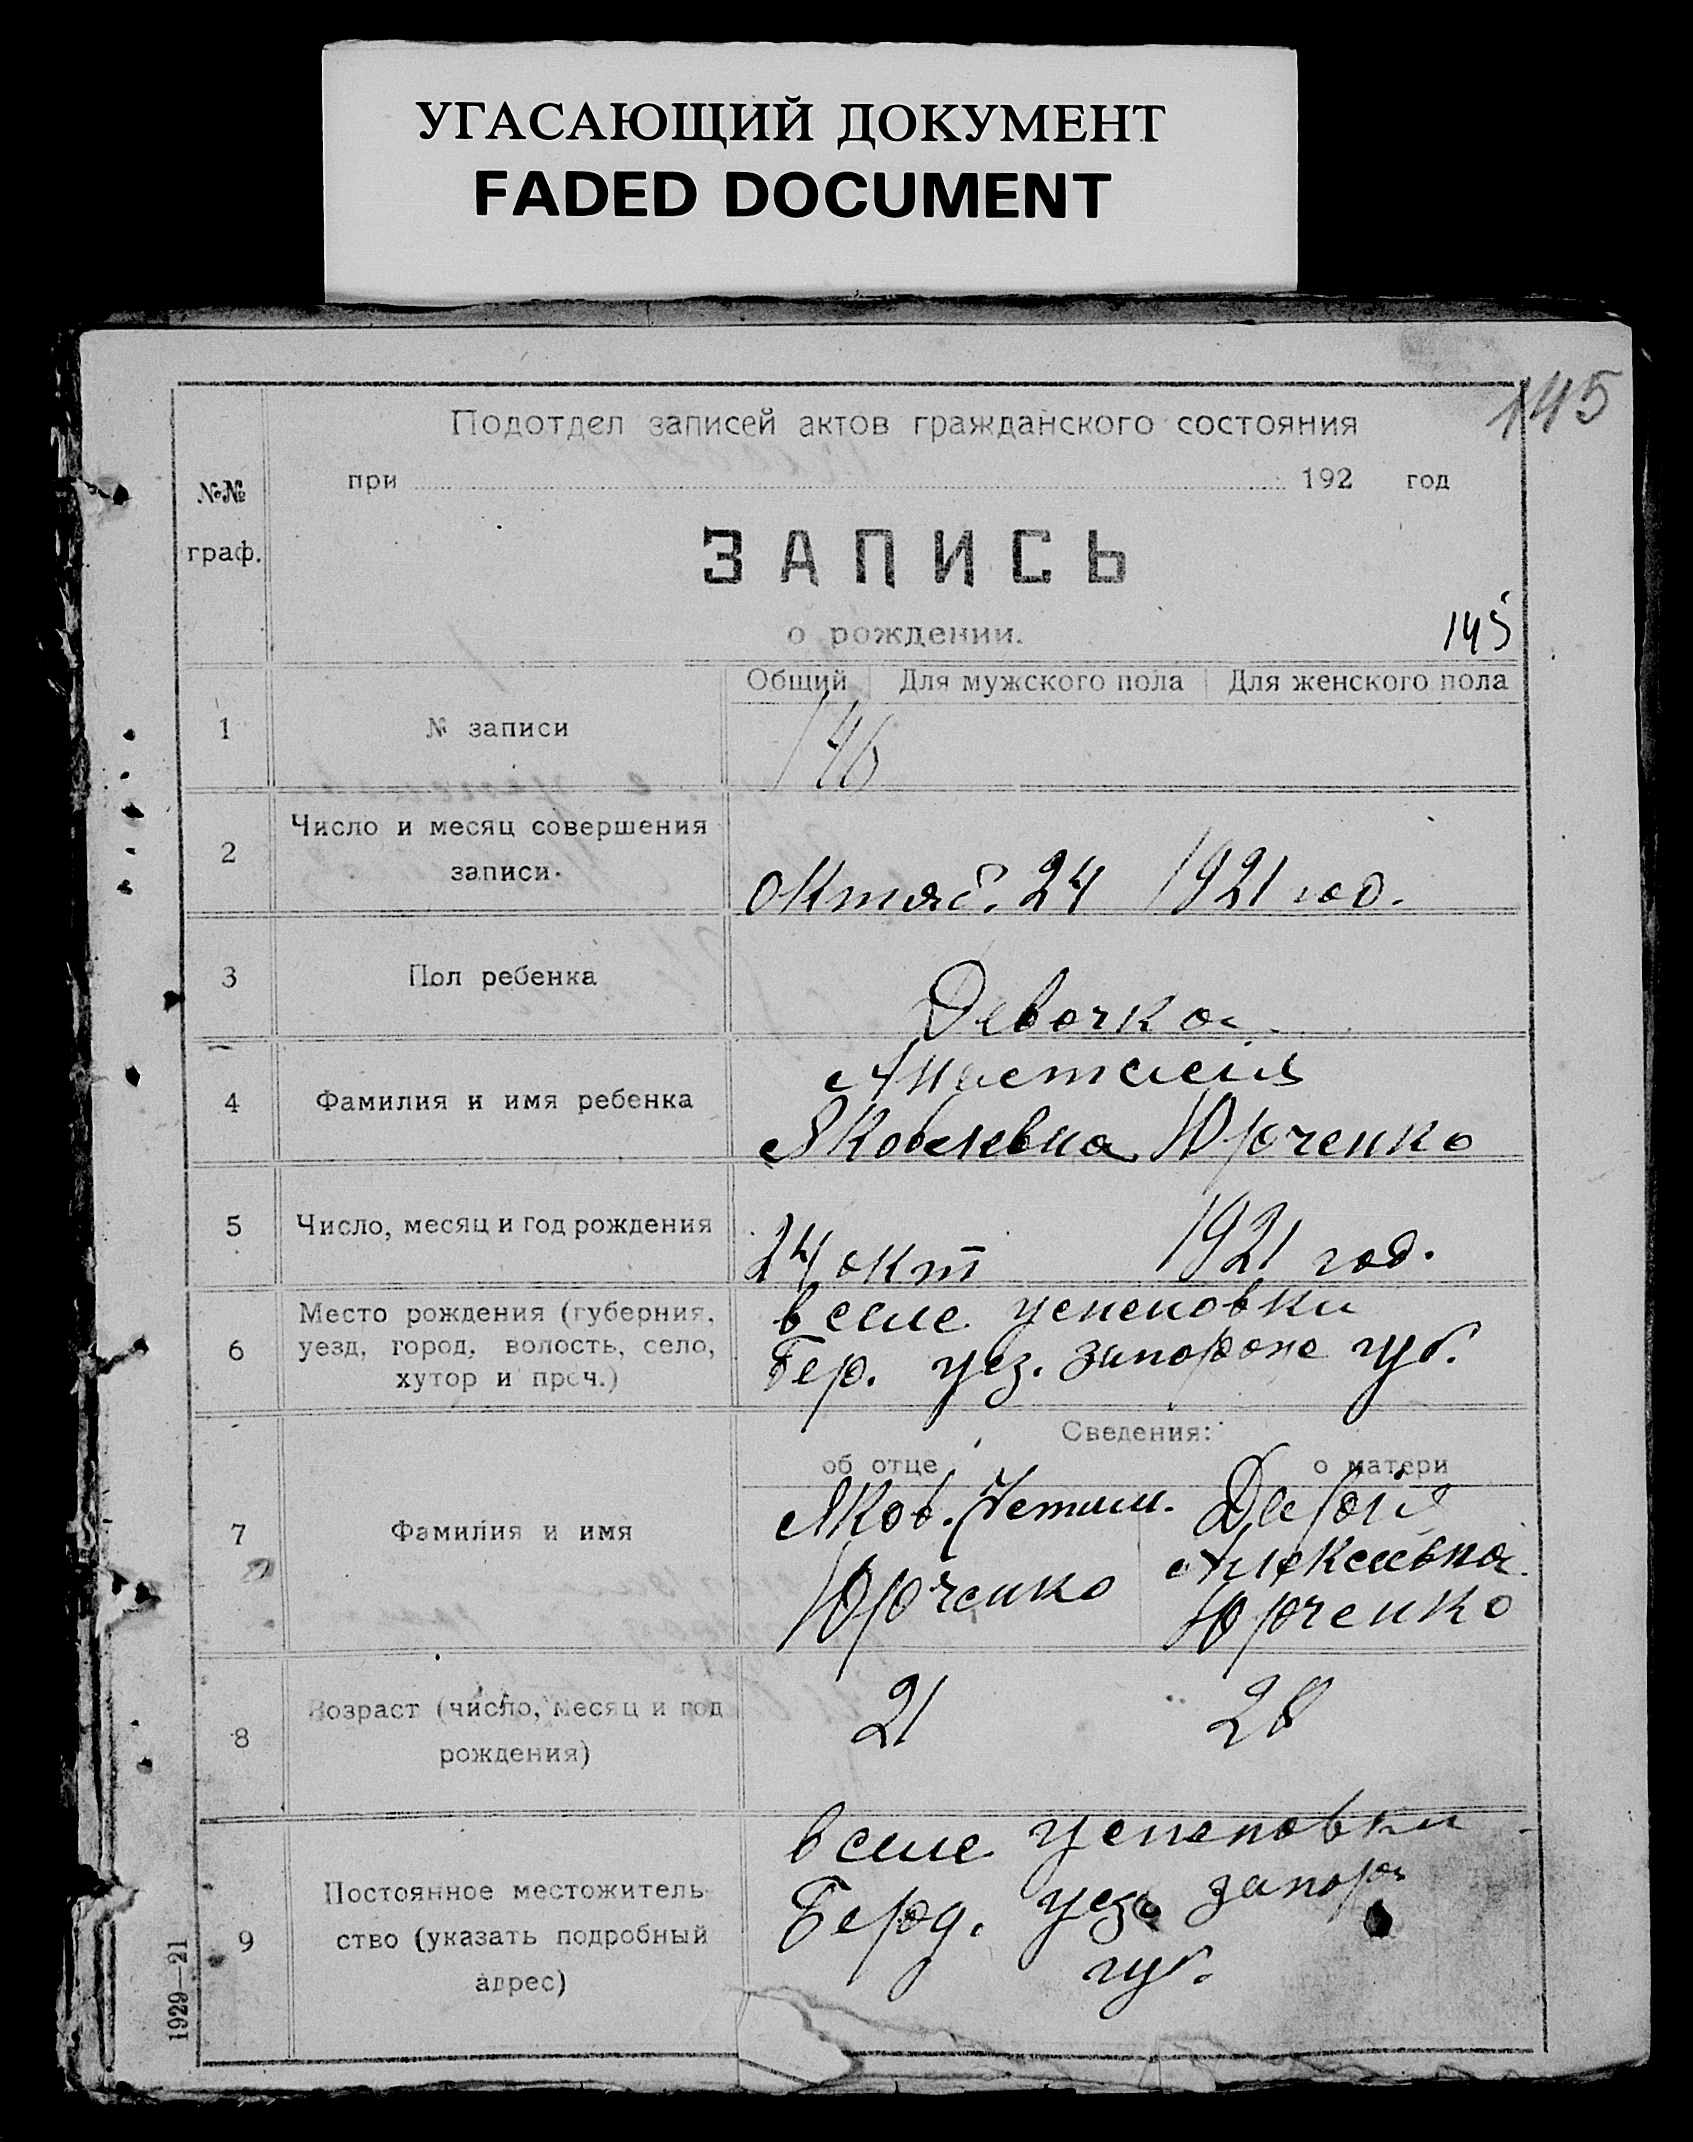 УГАСАЮЩИЙ ДОКУМЕНТ
FADED DOCUMENT
145
Подотдел записей актов гражданского состояния
№№
граф.
при 192 год
ЗАПИСЬ
о рождении.
145
Общий Для мужского пола Для женского пола
1 № записи
146
2 Число и месяц совершения
записи.
Октяб. 24 1921 год.
3 Пол ребенка
Девочка
4 Фамилия и имя ребенка
Анастасия
Яковлевна Юрченко
5 Число, месяц и год рождения
24 окт 1921 год.
6 Место рождения (губерния,
уезд, город, волость, село,
хутор и проч.)
в селе Успеновки
Бер. уез. запорож губ.
Сведения:
об отце о матери
7 Фамилия и имя
Яков.
Юрченко
Дарья
Алексевна
Юрченко
8 Возраст (число, месяц и год
рождения)
21 28
9 Постоянное местожитель-
ство (указать подробный
адрес)
в селе Успеновки
Берд. уез. запор
губ.
1929—21